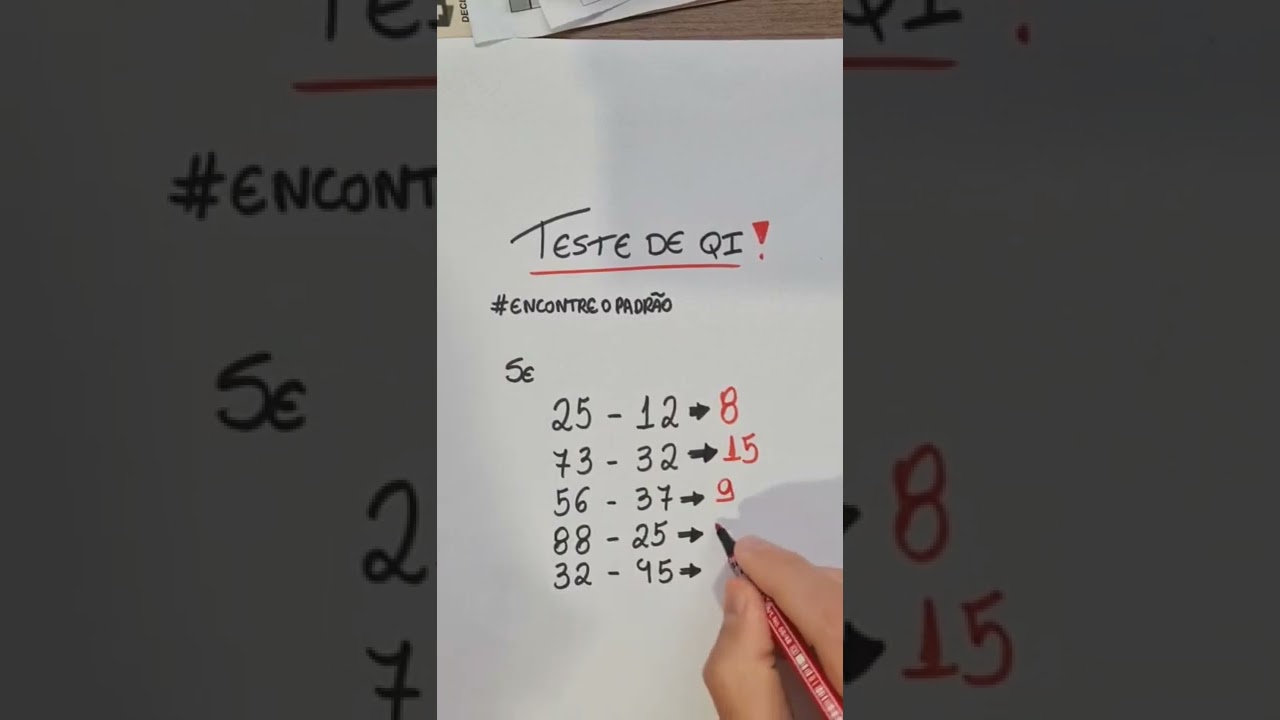 DECI
TESTE DE QI!
#ENCONTRE O PADRÃO
SE
25 - 12 → 8
73 - 32 → 15
56 - 37 → 9
88 - 25 →
32 - 45 →